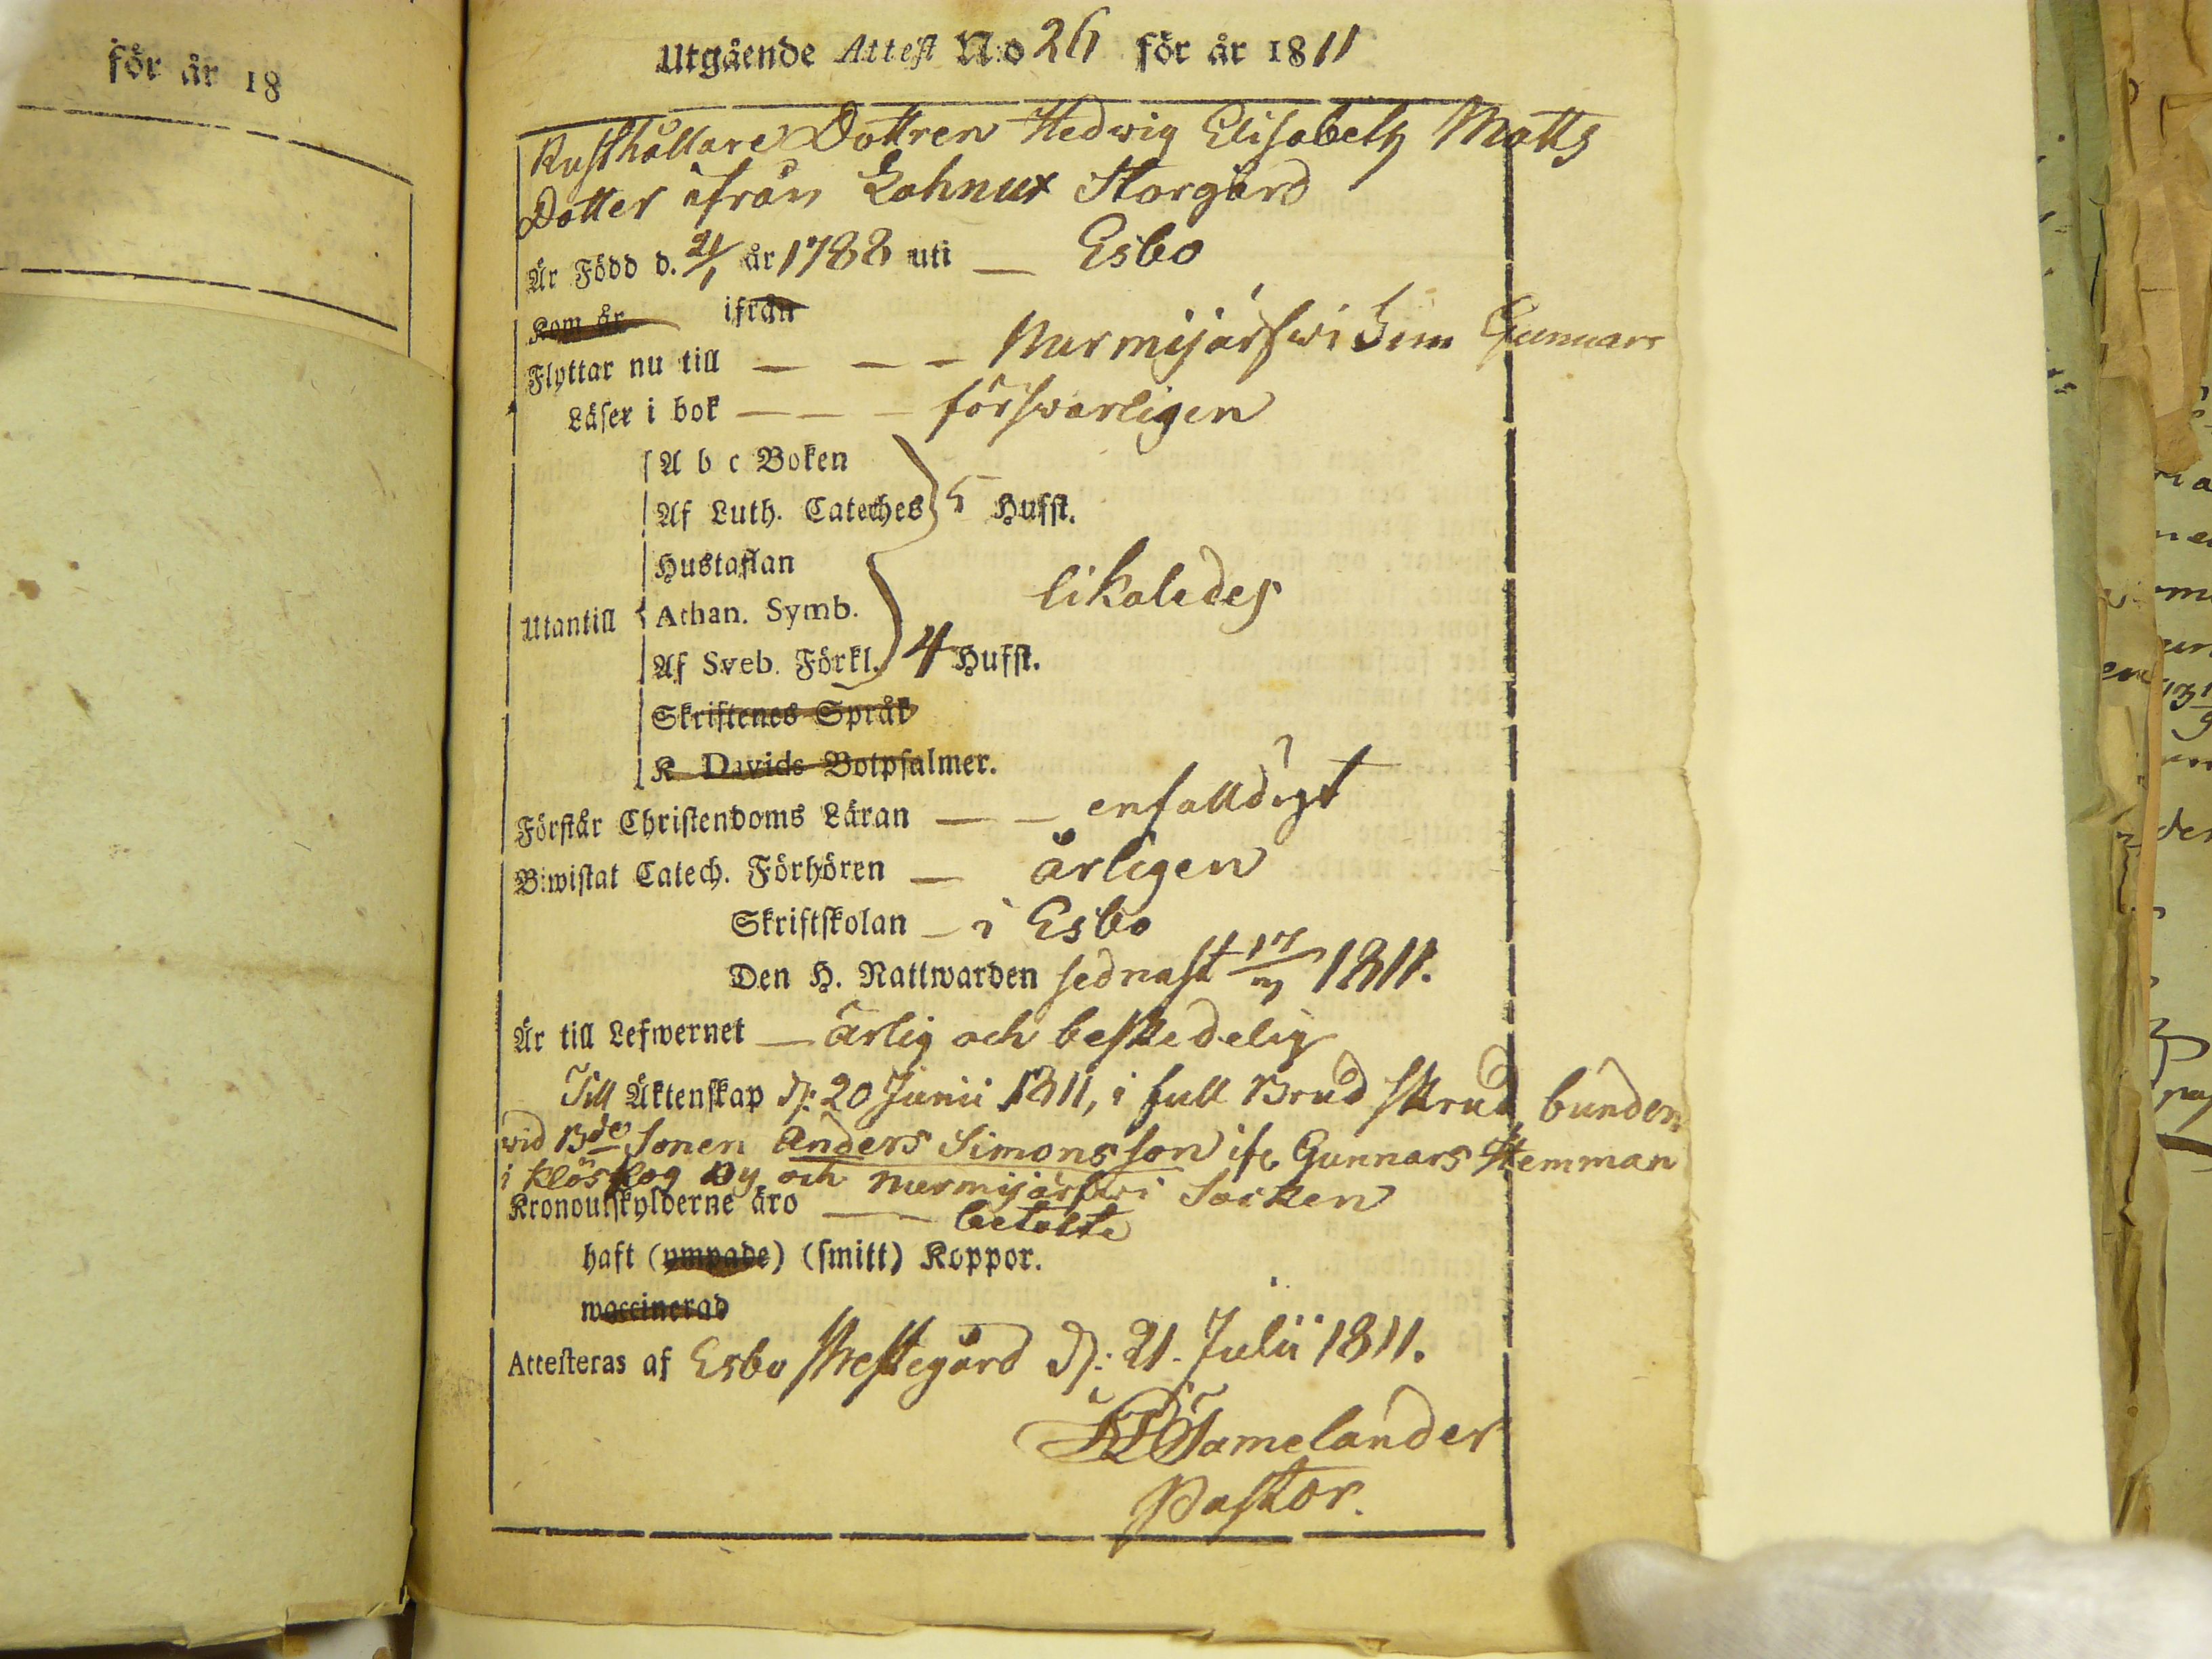 för år 18
Utgående Attest N:o 26 för år 1811
Rusthållare Dottren Hedwig Elisabeth Matts
Dotter ifrån Lahnus Storgård
Är Född d. 21/1 år 1788 uti — Esbo
Kom år ifrån
Flyttar nu till — — — Nurmijärfwi Gunnars
Läser i bok — — — förswarligen
A b c Boken
Af Luth. Cateches 5 Hufst.
Hustaflan
likaledes
Utantill Athan. Symb.
Af Sveb. Förkl. 4 Hufst.
Skriftenes Språk
K Davids Botpsalmer.
Förstår Christendoms Läran — — enfalldigt
Biwistat Catech. Förhören — årligen
Skriftskolan — i Esbo
Den H. Nattwarden sednast 17/7 1811.
Är till Lefwernet — ärlig och beskedelig
Till Äktenskap d: 20 Junii 1811, i full Brud skrud, bunden
wid Bde Sonen Anders Simonsson ifr. Gunnars Hemman
i Klöskog By och Nurmijärfwi Socken
Kronoutskylderne äro — betalte
haft (ympade) (smitt) Koppor.
waccinerad
Attesteras af Esbo Prestegård d: 21. Julii 1811.
Tamelander
Pastor.